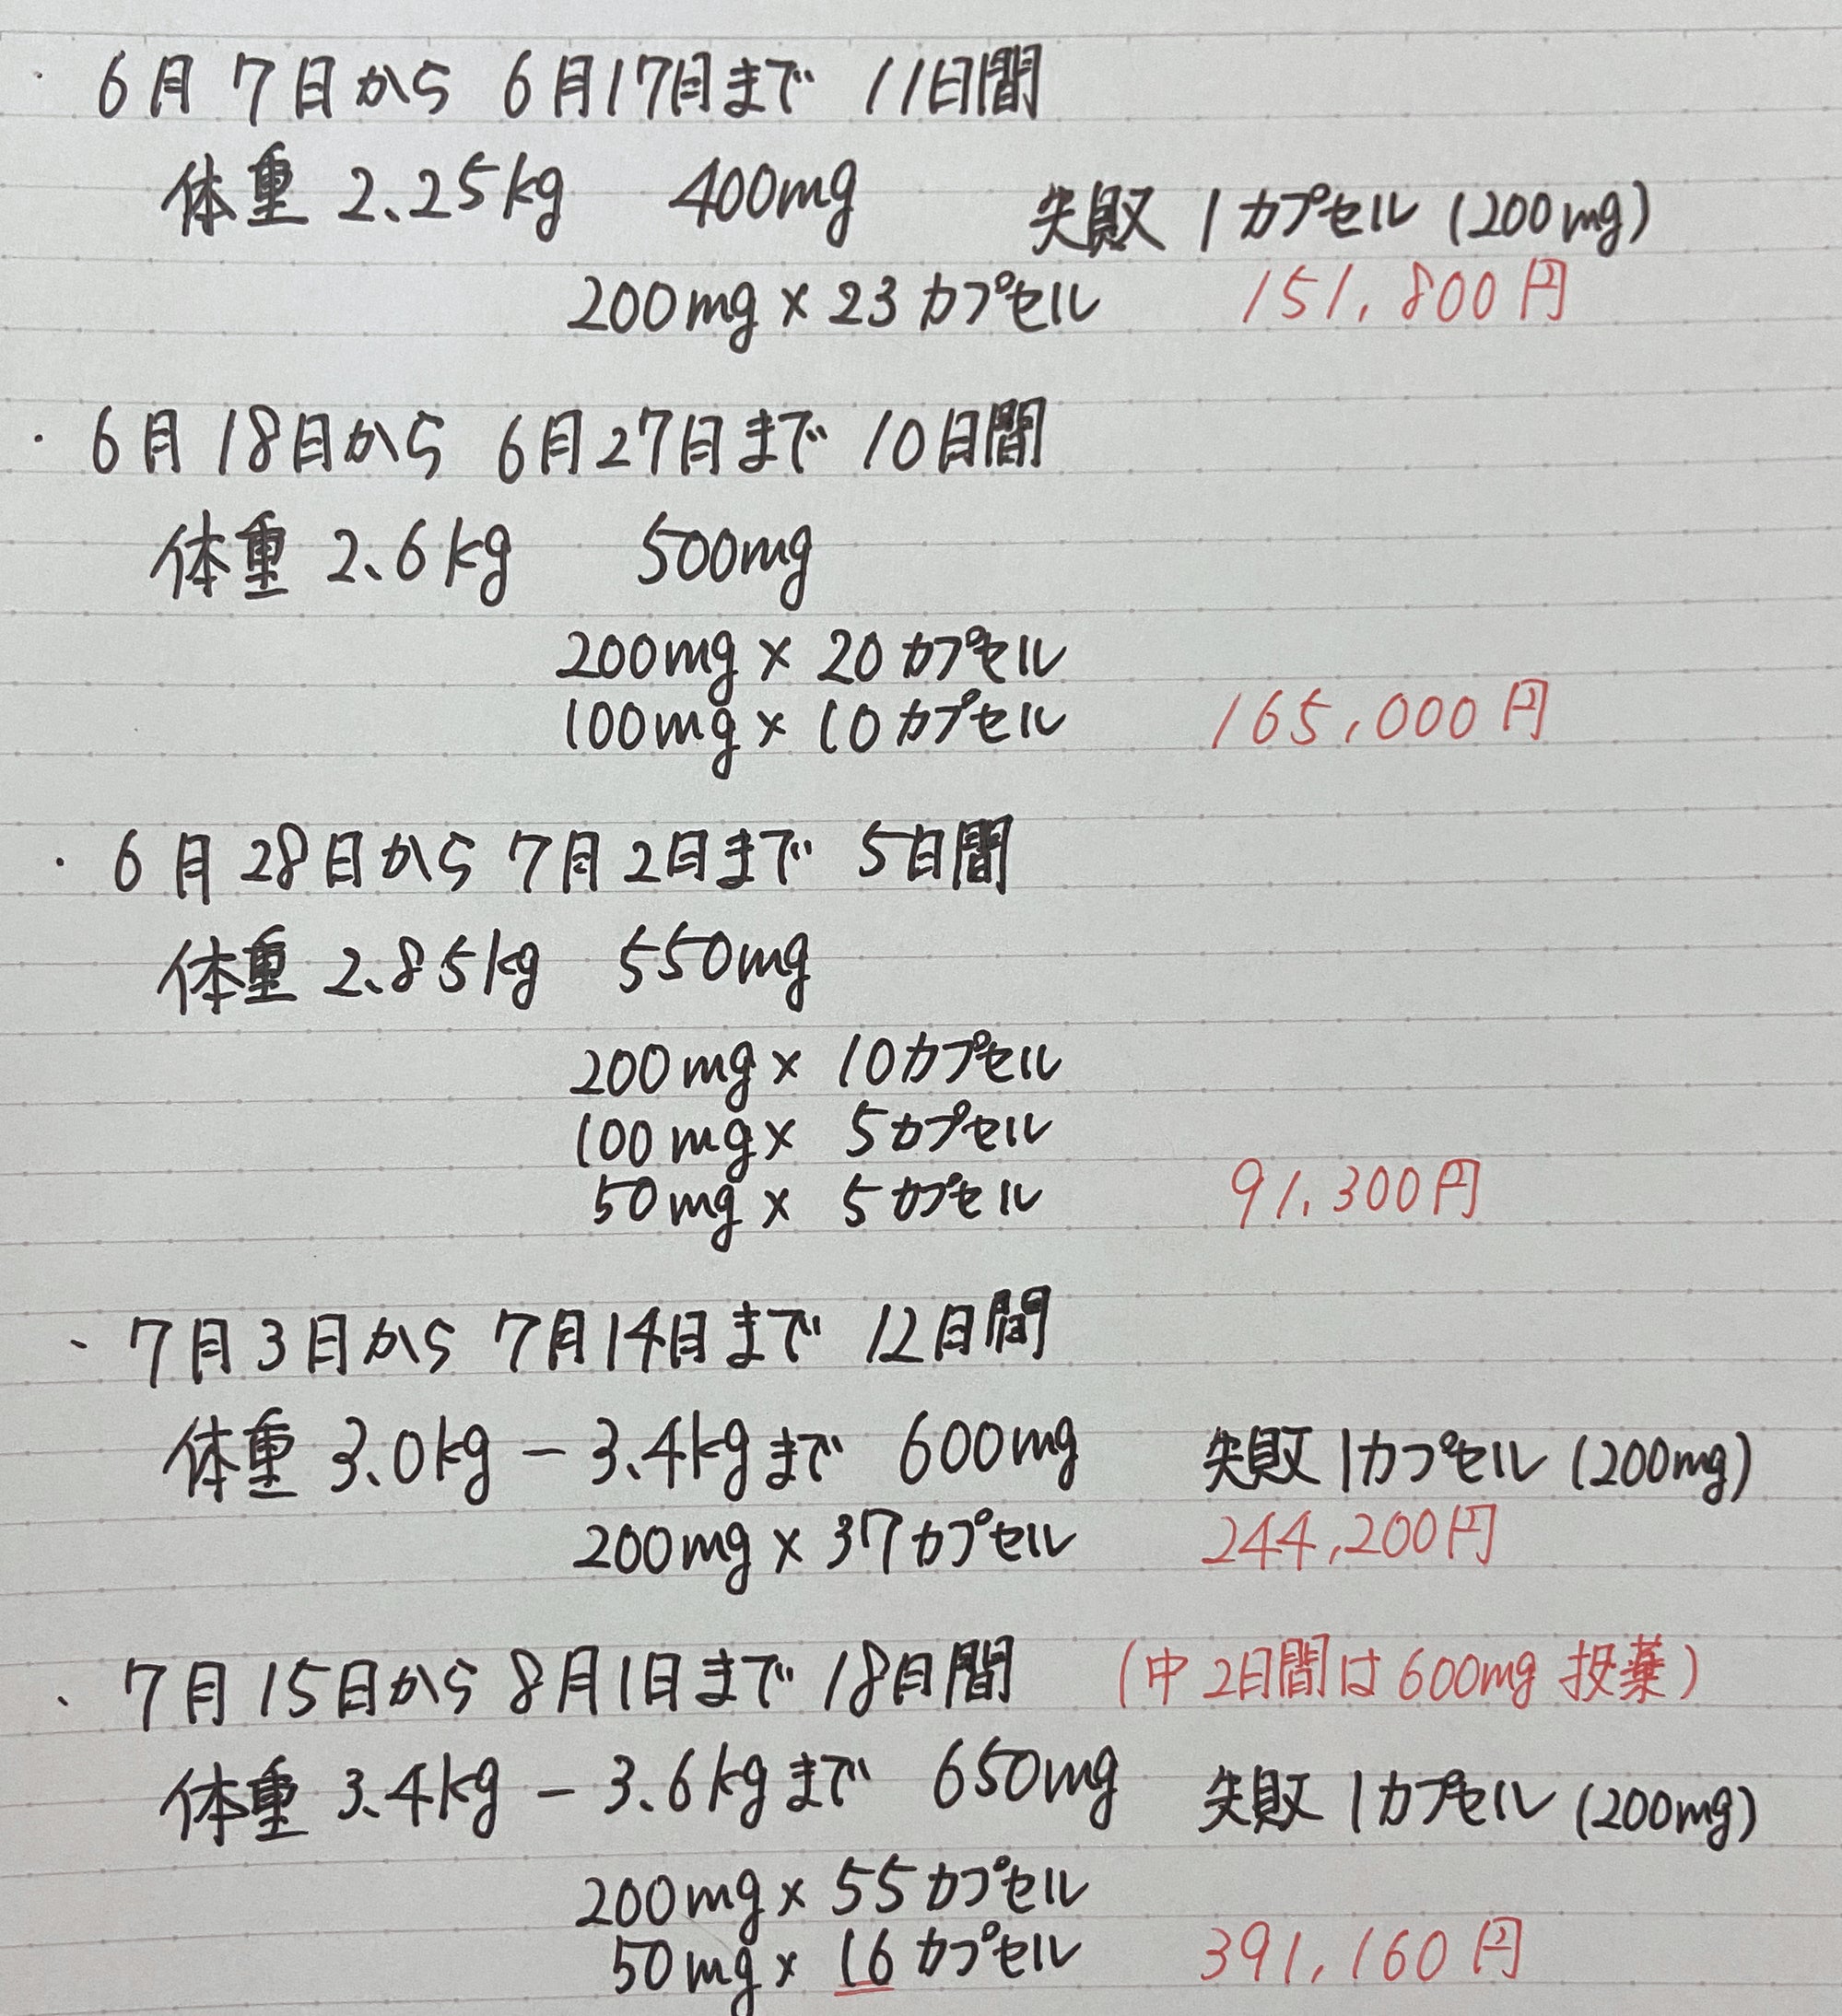 ・6月7日から 6月17日まで 11日間
体重 2.25kg 400mg 失敗 1カプセル (200mg)
200mg × 23カプセル 151,800円
・6月18日から 6月27日まで 10日間
体重 2.6kg 500mg
200mg × 20カプセル
100mg × 10カプセル 165,000円
・6月28日から 7月2日まで 5日間
体重 2.85kg 550mg
200mg × 10カプセル
100mg × 5カプセル
50mg × 5カプセル 91,300円
・7月3日から 7月14日まで 12日間
体重 3.0kg - 3.4kgまで 600mg 失敗 1カプセル (200mg)
200mg × 37カプセル 244,200円
・7月15日から 8月1日まで 18日間 (中2日間は600mg投薬)
体重 3.4kg - 3.6kgまで 650mg 失敗 1カプセル (200mg)
200mg × 55カプセル
50mg × 16カプセル 391,160円